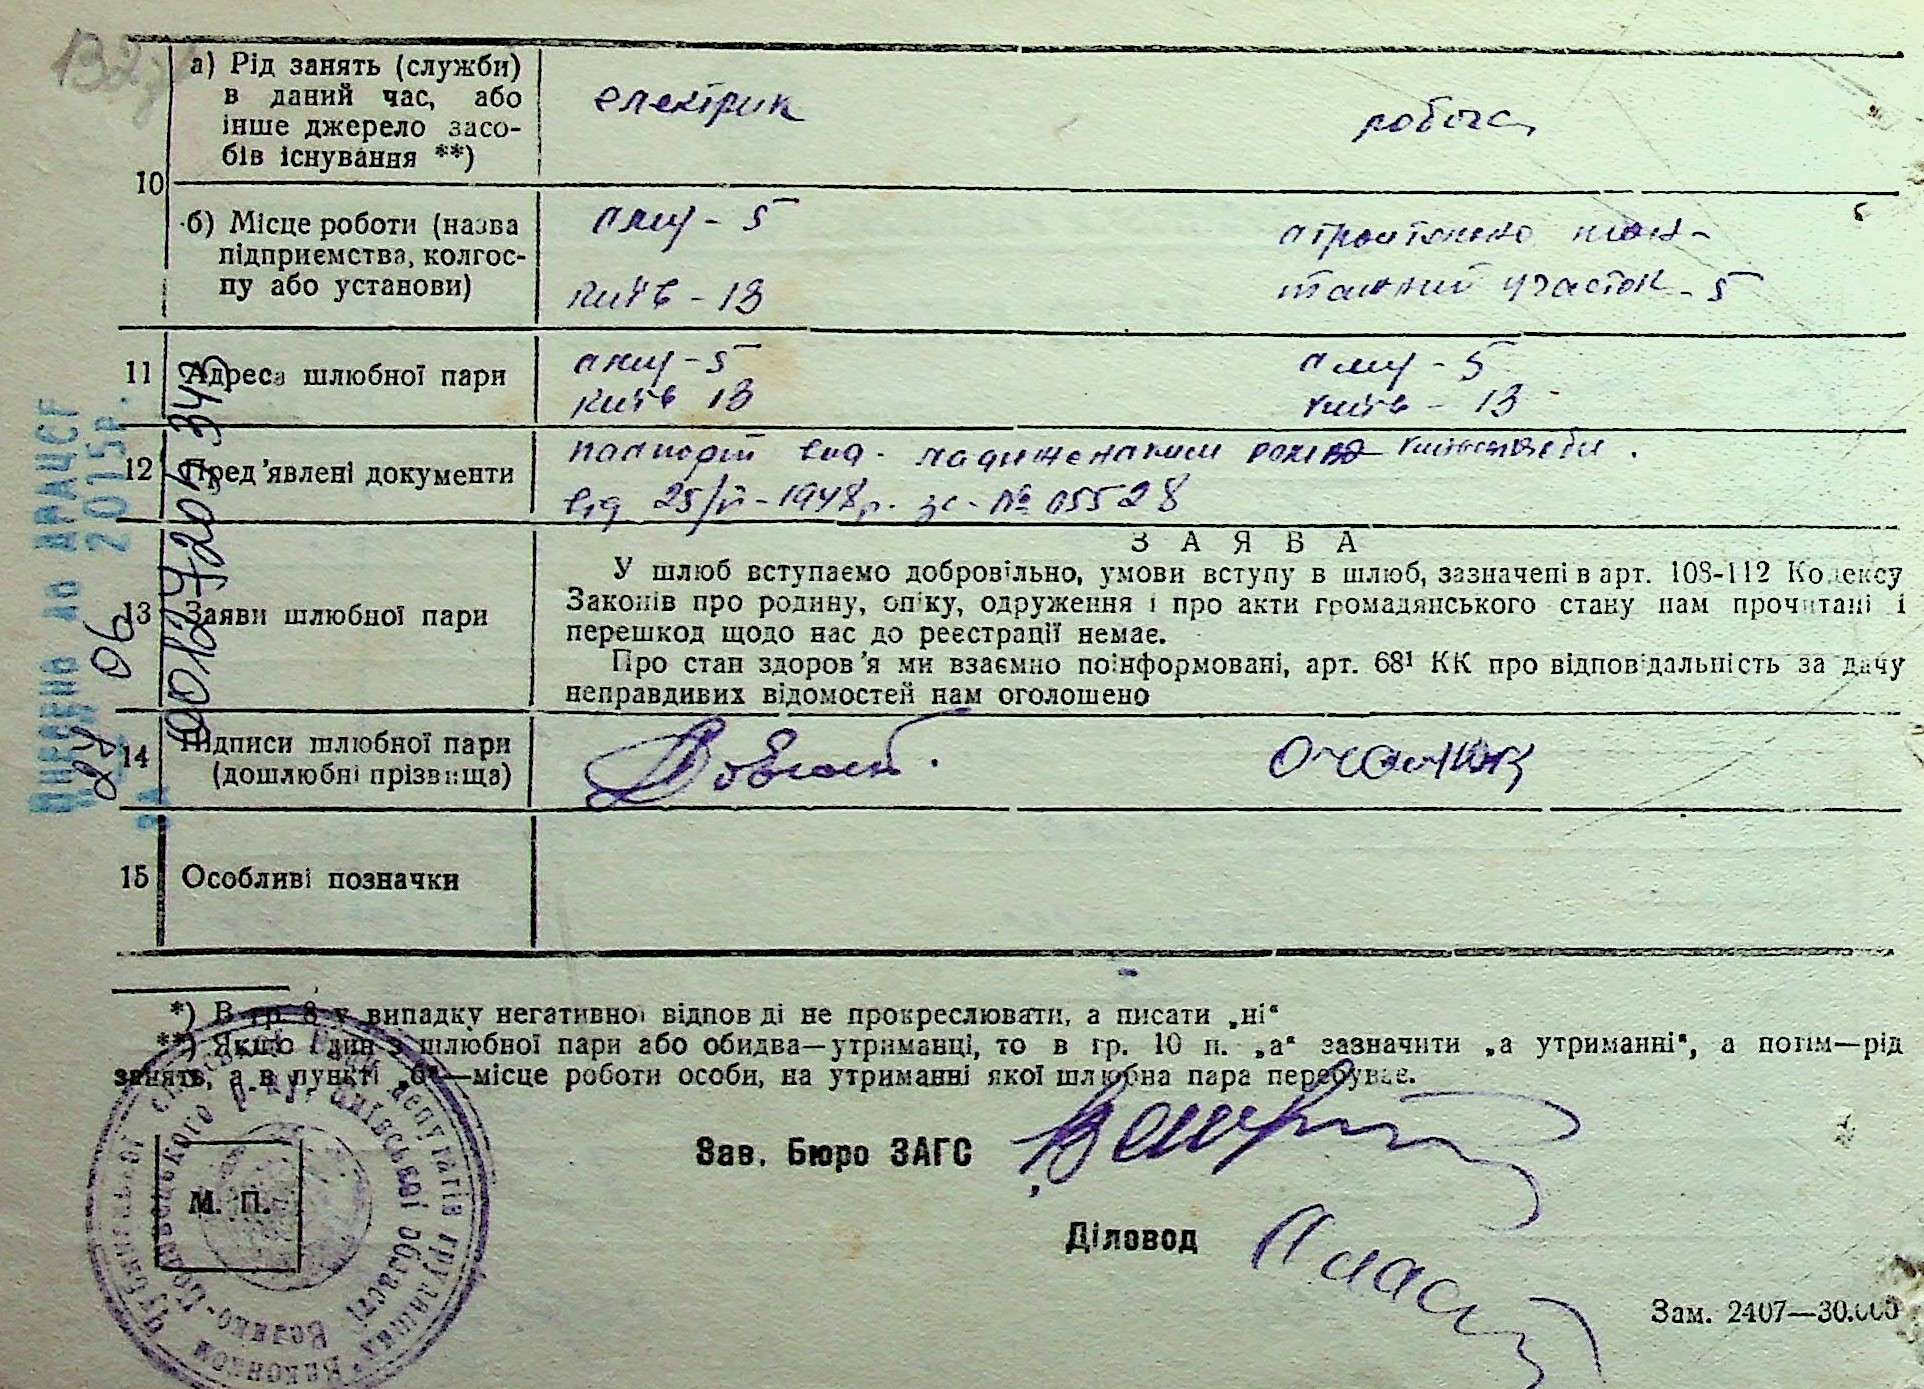 132
10
а) Рід занять (служби)
в даний час, або
інше джерело засо-
бів існування **)
електрик
робоча
б) Місце роботи (назва
підприємства, колгос-
пу або установи)
СМУ - 5
Київ - 13
участок - 5
11
Адреса шлюбної пари
СМУ - 5
Київ 13
СМУ - 5
Київ - 13
12
Пред'явлені документи
паспорт вид.
від 25/ - 1948р. № 05528
13
Заяви шлюбної пари
ЗАЯВА
У шлюб вступаємо добровільно, умови вступу в шлюб, зазначені в арт. 108-112 Кодексу
Законів про родину, опіку, одруження і про акти громадянського стану нам прочитані і
перешкод щодо нас до реєстрації немає.
Про стан здоров'я ми взаємно поінформовані, арт. 68¹ КК про відповідальність за дачу
неправдивих відомостей нам оголошено
14
Підписи шлюбної пари
(дошлюбні прізвища)
15
Особливі позначки
ВНЕСЕНО до ДРАЦСГ
24 06 2015р.
за № 00127201343
*) В гр. 8 у випадку негативної відповіді не прокреслювати, а писати „ні“
**) Якщо один з шлюбної пари або обидва—утриманці, то в гр. 10 п. „а“ зазначити „а утриманні“, а потім—рід
занять, а в пункті „б“—місце роботи особи, на утриманні якої шлюбна пара перебуває.
Зав. Бюро ЗАГС
М. П.
Діловод
Зам. 2407—30.000